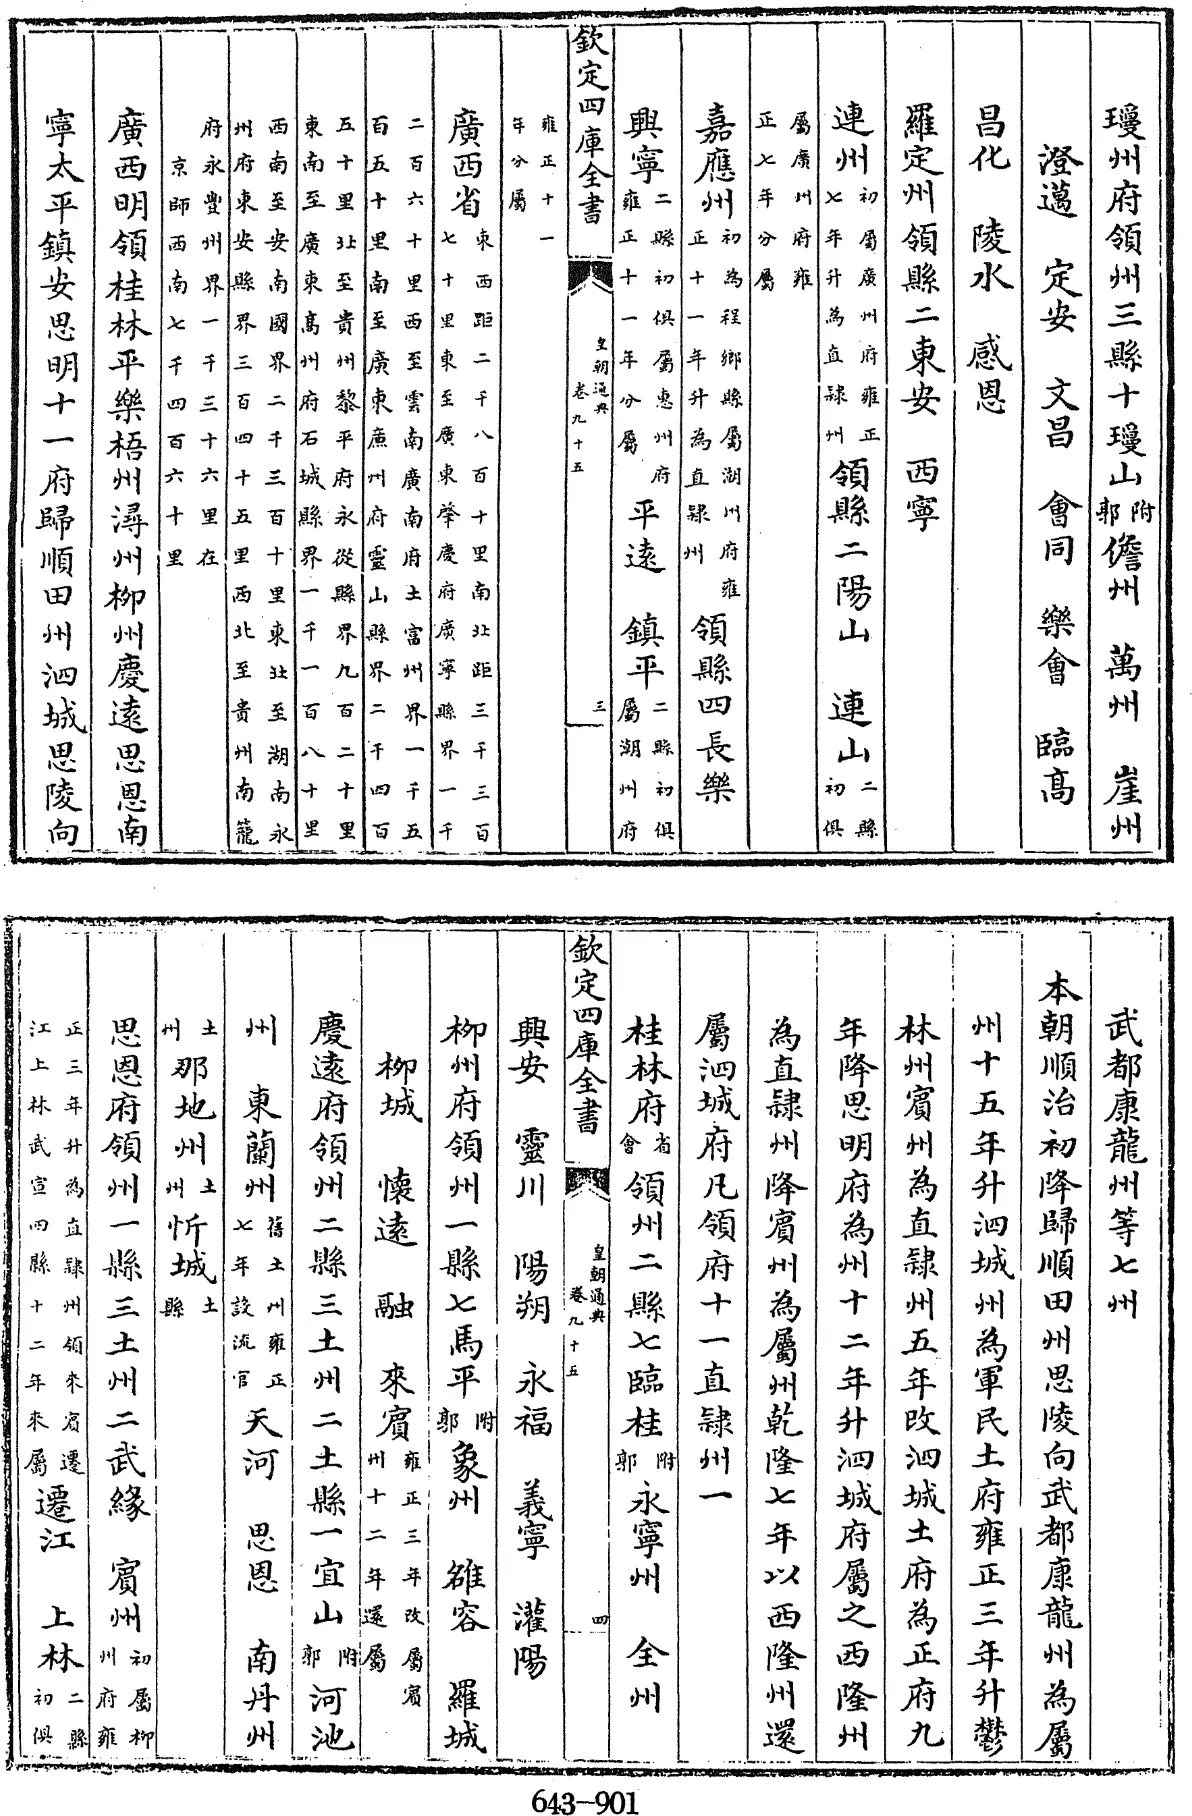 瓊州府領州三縣十瓊山附郭儋州 萬州 崖州
澄邁 定安 文昌 會同 樂會 臨高
昌化 陵水 感恩
羅定州領縣二東安 西寧
連州初屬廣州府雍正七年升為直隸州領縣二陽山 連山二縣初俱
屬廣州府雍正七年分屬
嘉應州初為程鄉縣屬潮州府雍正十一年升為直隸州領縣四長樂
興寧二縣初俱屬惠州府雍正十一年分屬平遠 鎮平二縣初俱屬潮州府
欽定四庫全書
皇朝通典
卷九十五
三
雍正十一年分屬
廣西省東西距二千八百十里南北距三千三百七十里東至廣東肇慶府廣寧縣界一千
二百六十里西至雲南廣南府土富州界一千五百五十里南至廣東廉州府靈山縣界二千四百
五十里北至貴州黎平府永從縣界九百二十里東南至廣東高州府石城縣界一千一百八十里
西南至安南國界二千三百十里東北至湖南永州府東安縣界三百四十五里西北至貴州南籠
府永豐州界一千三十六里在京師西南七千四百六十里
廣西明領桂林平樂梧州潯州柳州慶遠思恩南
寧太平鎮安思明十一府歸順田州泗城思陵向
武都康龍州等七州
本朝順治初降歸順田州思陵向武都康龍州為屬
州十五年升泗城州為軍民土府雍正三年升鬱
林州賓州為直隸州五年改泗城土府為正府九
年降思明府為州十二年升泗城府屬之西隆州
為直隸州降賓州為屬州乾隆七年以西隆州還
屬泗城府凡領府十一直隸州一
桂林府省會領州二縣七臨桂附郭永寧州 全州
欽定四庫全書
皇朝通典
卷九十五
四
興安 靈川 陽朔 永福 義寧 灌陽
柳州府領州一縣七馬平附郭象州 雒容 羅城
柳城 懷遠 融 來賓雍正三年改屬賓州十二年還屬
慶遠府領州二縣三土州二土縣一宜山附郭河池
州 東蘭州舊土州雍正七年設流官天河 思恩 南丹州
土州那地州土州忻城土縣
思恩府領州一縣三土州二武緣 賓州初屬柳州府雍
正三年升為直隸州領來賓遷江上林武宣四縣十二年來屬遷江 上林二縣初俱
643-901